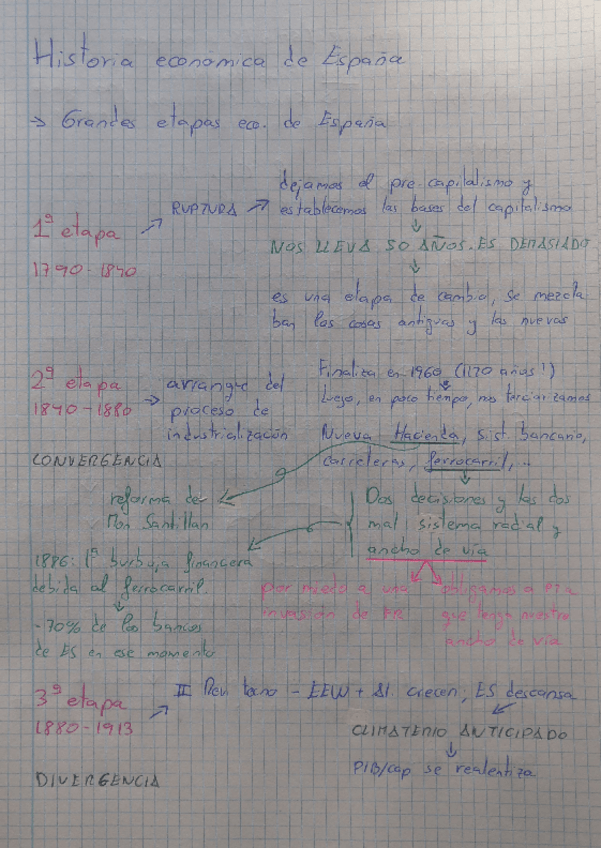 Historia económica de España
→ Grandes etapas eco. de España
1ª etapa
1790-1840
RUPTURA
dejamos el pre-capitalismo y
establecemos las bases del capitalismo
NOS LLEVA 50 AÑOS. ES DEMASIADO
es una etapa de cambio, se mezcla
ban las cosas antiguas y las nuevas
2ª etapa
1840-1880
CONVERGENCIA
arranque del
proceso de
industrialización
Finaliza en 1960 (¡120 años!)
Luego, en poco tiempo, nos terciarizamos
Nueva Hacienda, sist. bancario,
carreteras, ferrocarril, ...
reforma de
Mon Santillan
Dos decisiones y las dos
mal: sistema radial y
ancho de vía
1886: 1ª burbuja financiera
debida al ferrocarril.
-70% de los bancos
de ES en ese momento
por miedo a una
invasión de FR
obligamos a
que tenga nuestro
ancho de vía
3ª etapa
1880-1913
DIVERGENCIA
II Rev. tecno - EEUU + Al. crecen; ES descansa
CLIMATERIO ANTICIPADO
PIB/cap se realentiza